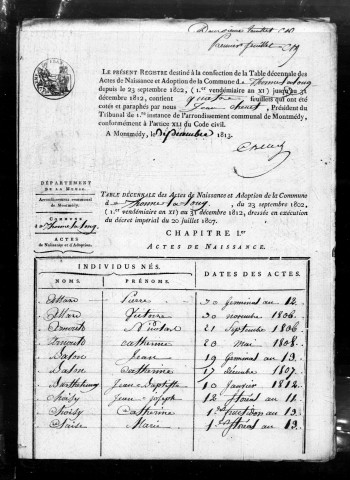 Premier feuillet
LE PRÉSENT REGISTRE destiné à la confection de la Table décennale des
Actes de Naissance et Adoption de la Commune de Thonne la long
depuis le 23 septembre 1802, (1.er vendémiaire an XI) jusqu'au 31
décembre 1812, contenant quatre feuillets qui ont été
cotés et paraphés par nous Président du
Tribunal de 1.re instance de l'arrondissement communal de Montmédy,
conformément à l'article XLI du Code civil.
A MONTMÉDY, le décembre 1813.
DÉPARTEMENT
DE LA MEUSE.
Arrondissement communal
de Montmédy.
COMMUNE
de Thonne la long.
ACTES
de Naissance et d'Adoption.
TABLE DÉCENNALE des Actes de Naissance et Adoption de la Commune
de Thonne la long, du 23 septembre 1802,
(1.er vendémiaire an XI) au 31 décembre 1812, dressée en exécution
du décret impérial du 20 juillet 1807.
CHAPITRE I.er
ACTES DE NAISSANCE.
INDIVIDUS NÉS.
NOMS. PRÉNOMS. DATES DES ACTES.
Pierre 30 germinal an 12.
Victoire 30 novembre 1806.
Nicolas 21 Septembre 1806.
Catherine 20 Mai 1808.
Jean 19 Germinal an 13.
Catherine 17 décembre 1807.
Barthelemy Jean Baptiste 10 janvier 1812.
Choisy Jean Joseph 12 floréal an 11.
Choisy Catherine 1.er fructidor an 13.
Marie 1.er floréal an 13.